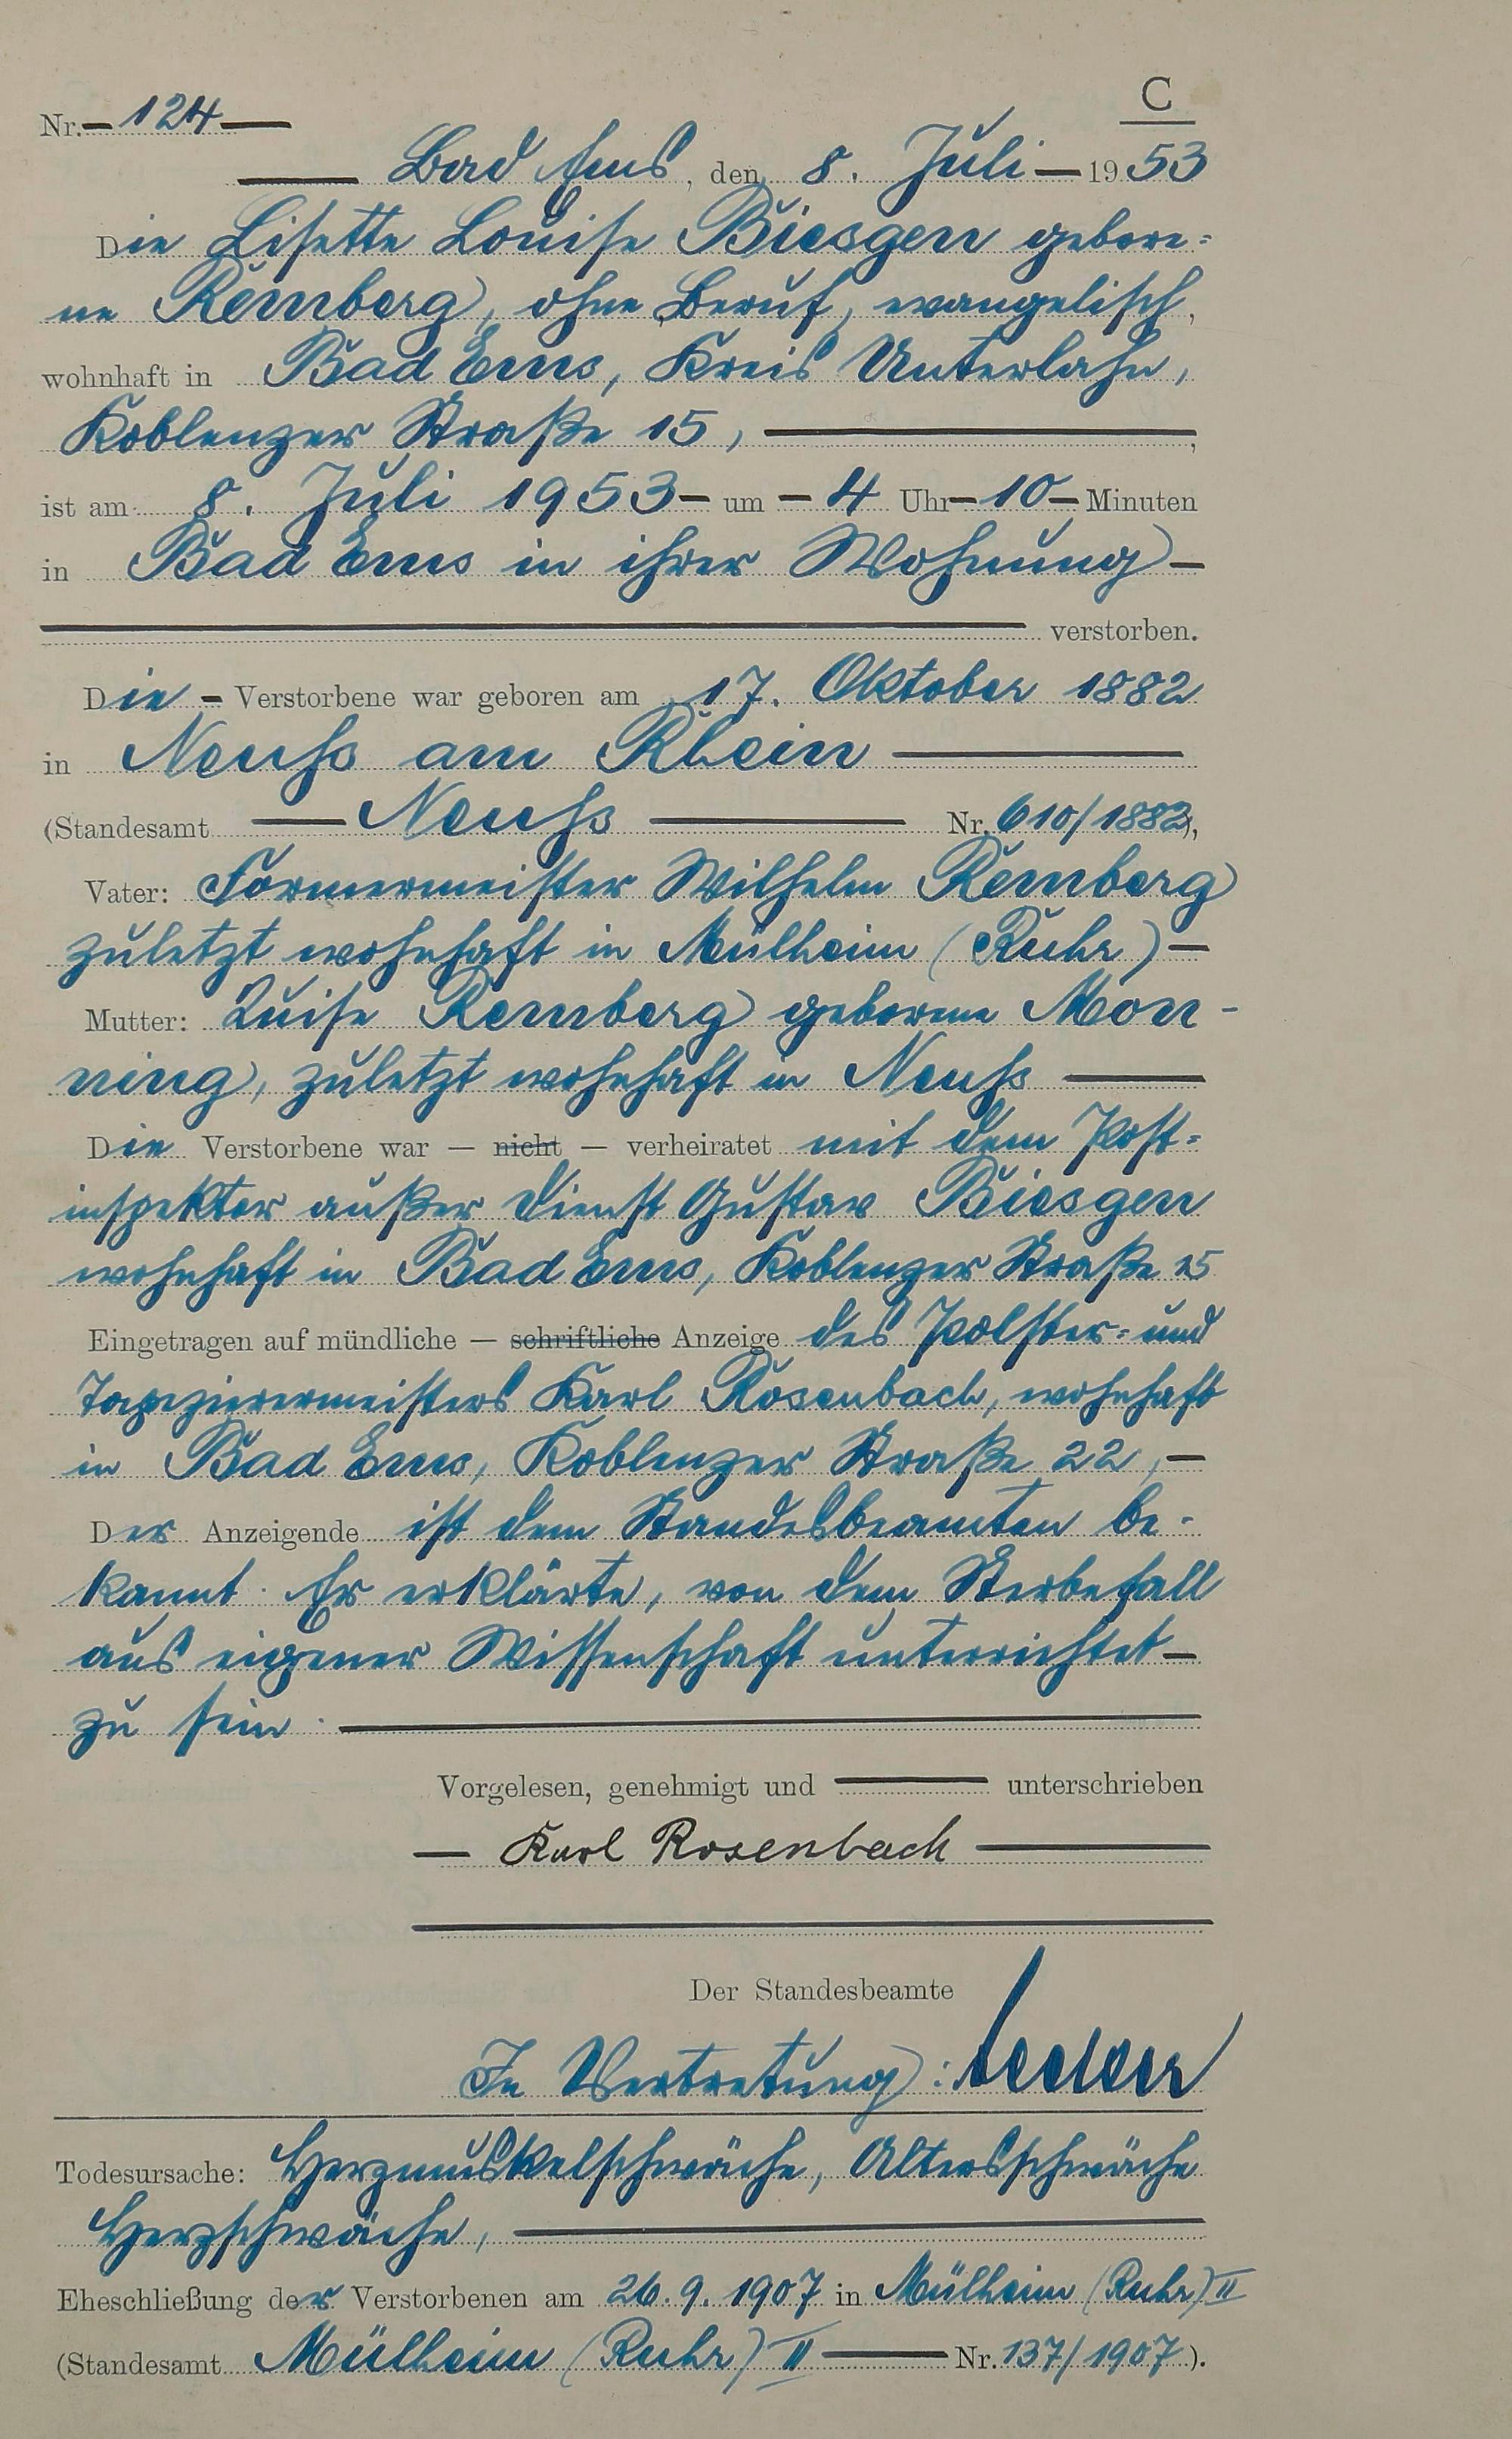 C
Nr. 124
Bad Ems, den 8. Juli 1953
Die Lisette Louise Biesgen gebore-
ne Remberg, ohne Beruf, evangelisch,
wohnhaft in Bad Ems, Kreis Unterlahn,
Koblenzer Straße 15,
ist am 8. Juli 1953 um 4 Uhr 10 Minuten
in Bad Ems in ihrer Wohnung
verstorben.
Die Verstorbene war geboren am 17. Oktober 1882
in Neuss am Rhein
(Standesamt Neuss Nr. 610/1882),
Vater: Formermeister Wilhelm Remberg
zuletzt wohnhaft in Mülheim (Ruhr)
Mutter: Luise Remberg geborene Mon-
ning, zuletzt wohnhaft in Neuss
Die Verstorbene war — nicht — verheiratet mit dem Post-
inspektor außer Dienst Gustav Biesgen
wohnhaft in Bad Ems, Koblenzer Straße 15
Eingetragen auf mündliche — schriftliche Anzeige des Polster- und
Tapezierermeisters Karl Rosenbach, wohnhaft
in Bad Ems, Koblenzer Straße 22,
Der Anzeigende ist dem Standesbeamten be-
kannt. Er erklärte, von dem Sterbefall
aus eigener Wissenschaft unterrichtet
zu sein.
Vorgelesen, genehmigt und unterschrieben
Karl Rosenbach
Der Standesbeamte
In Vertretung:
Todesursache: Herzmuskelschwäche, Altersschwäche
Herzschwäche,
Eheschließung der Verstorbenen am 26.9.1907 in Mülheim (Ruhr) II
(Standesamt Mülheim (Ruhr) II Nr. 137/1907).